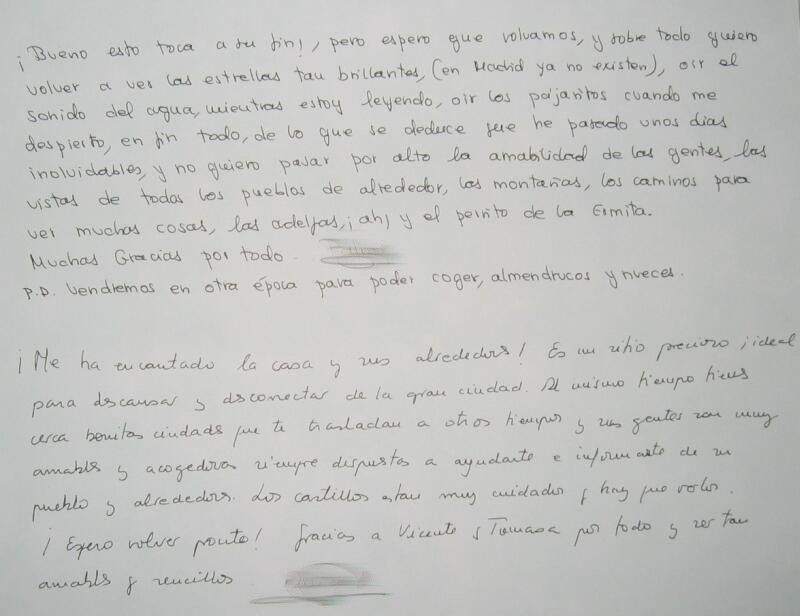 ¡Bueno esto toca a su fin!, pero espero que volvamos, y sobre todo quiero
volver a ver las estrellas tan brillantes, (en Madrid ya no existen), oir el
sonido del agua, mientras estoy leyendo, oir los pajaritos cuando me
despierto, en fin todo, de lo que se deduce que he pasado unos dias
inolvidables, y no quiero pasar por alto la amabilidad de las gentes, las
vistas de todos los pueblos de alrededor, las montañas, los caminos para
ver muchas cosas, las adelfas, ¡ah! y el perrito de la Ermita.
Muchas Gracias por todo.
P.D. Vendremos en otra época para poder coger, almendrucos y nueces.
¡Me ha encantado la casa y sus alrededores! Es un sitio precioso ¡ideal
para descansar y desconectar de la gran ciudad. Al mismo tiempo tienes
cerca bonitas ciudades que te trasladan a otros tiempos y sus gentes son muy
amables y acogedoras siempre dispuestas a ayudarte e informarte de su
pueblo y alrededores. Los castillos estan muy cuidados y hay que verlos.
¡Espero volver pronto! Gracias a Vicente y Tomasa por todo y ser tan
amables y sencillos